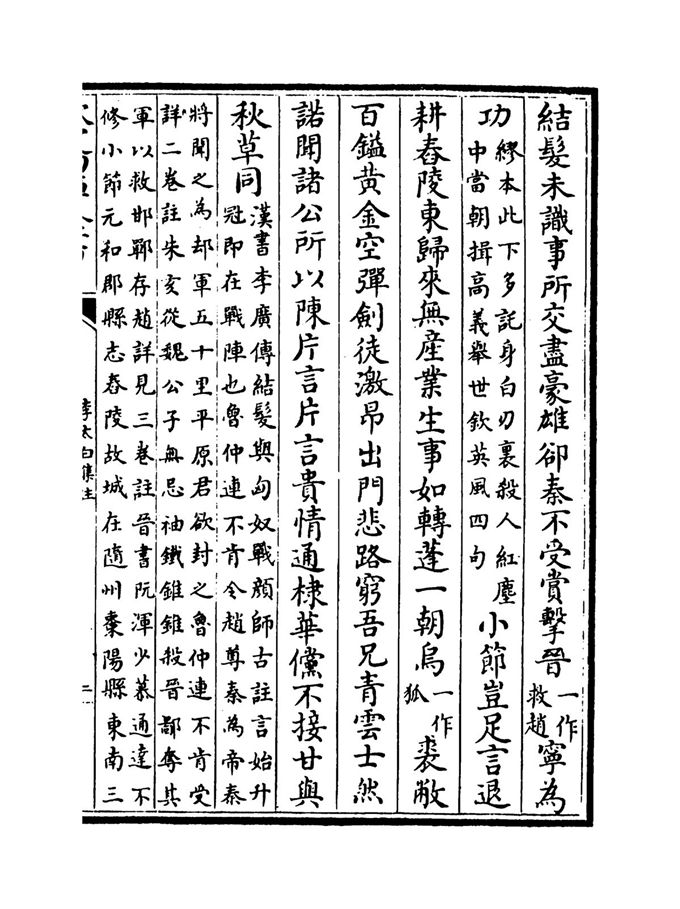 結髮未識事所交盡豪雄卻秦不受賞擊晉一作救趙寧為
功繆本此下多託身白刃裏殺人紅塵中當朝揖高義舉世欽英風四句小節豈足言退
耕舂陵東歸來無産業生事如轉蓬一朝烏一作狐裘敝
百鎰黃金空彈劍徒激昂出門悲路窮吾兄青雲士然
諾聞諸公所以陳片言片言貴情通棣華儻不接甘與
秋草同漢書李廣傳結髮與匈奴戰顔師古註言始升冠即在戰陣也魯仲連不肯令趙尊秦為帝秦
將聞之為却軍五十里平原君欲封之魯仲連不肯受
詳二卷註朱亥從魏公子無忌袖鐵錐錐殺晉鄙奪其
軍以救邯鄲存趙詳見三卷註晉書阮渾少慕通達不
修小節元和郡縣志舂陵故城在隨州棗陽縣東南三
李太白集注
二